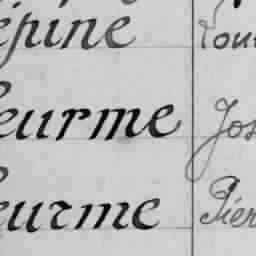 épine Loui
eurme Jos
eurme Pier